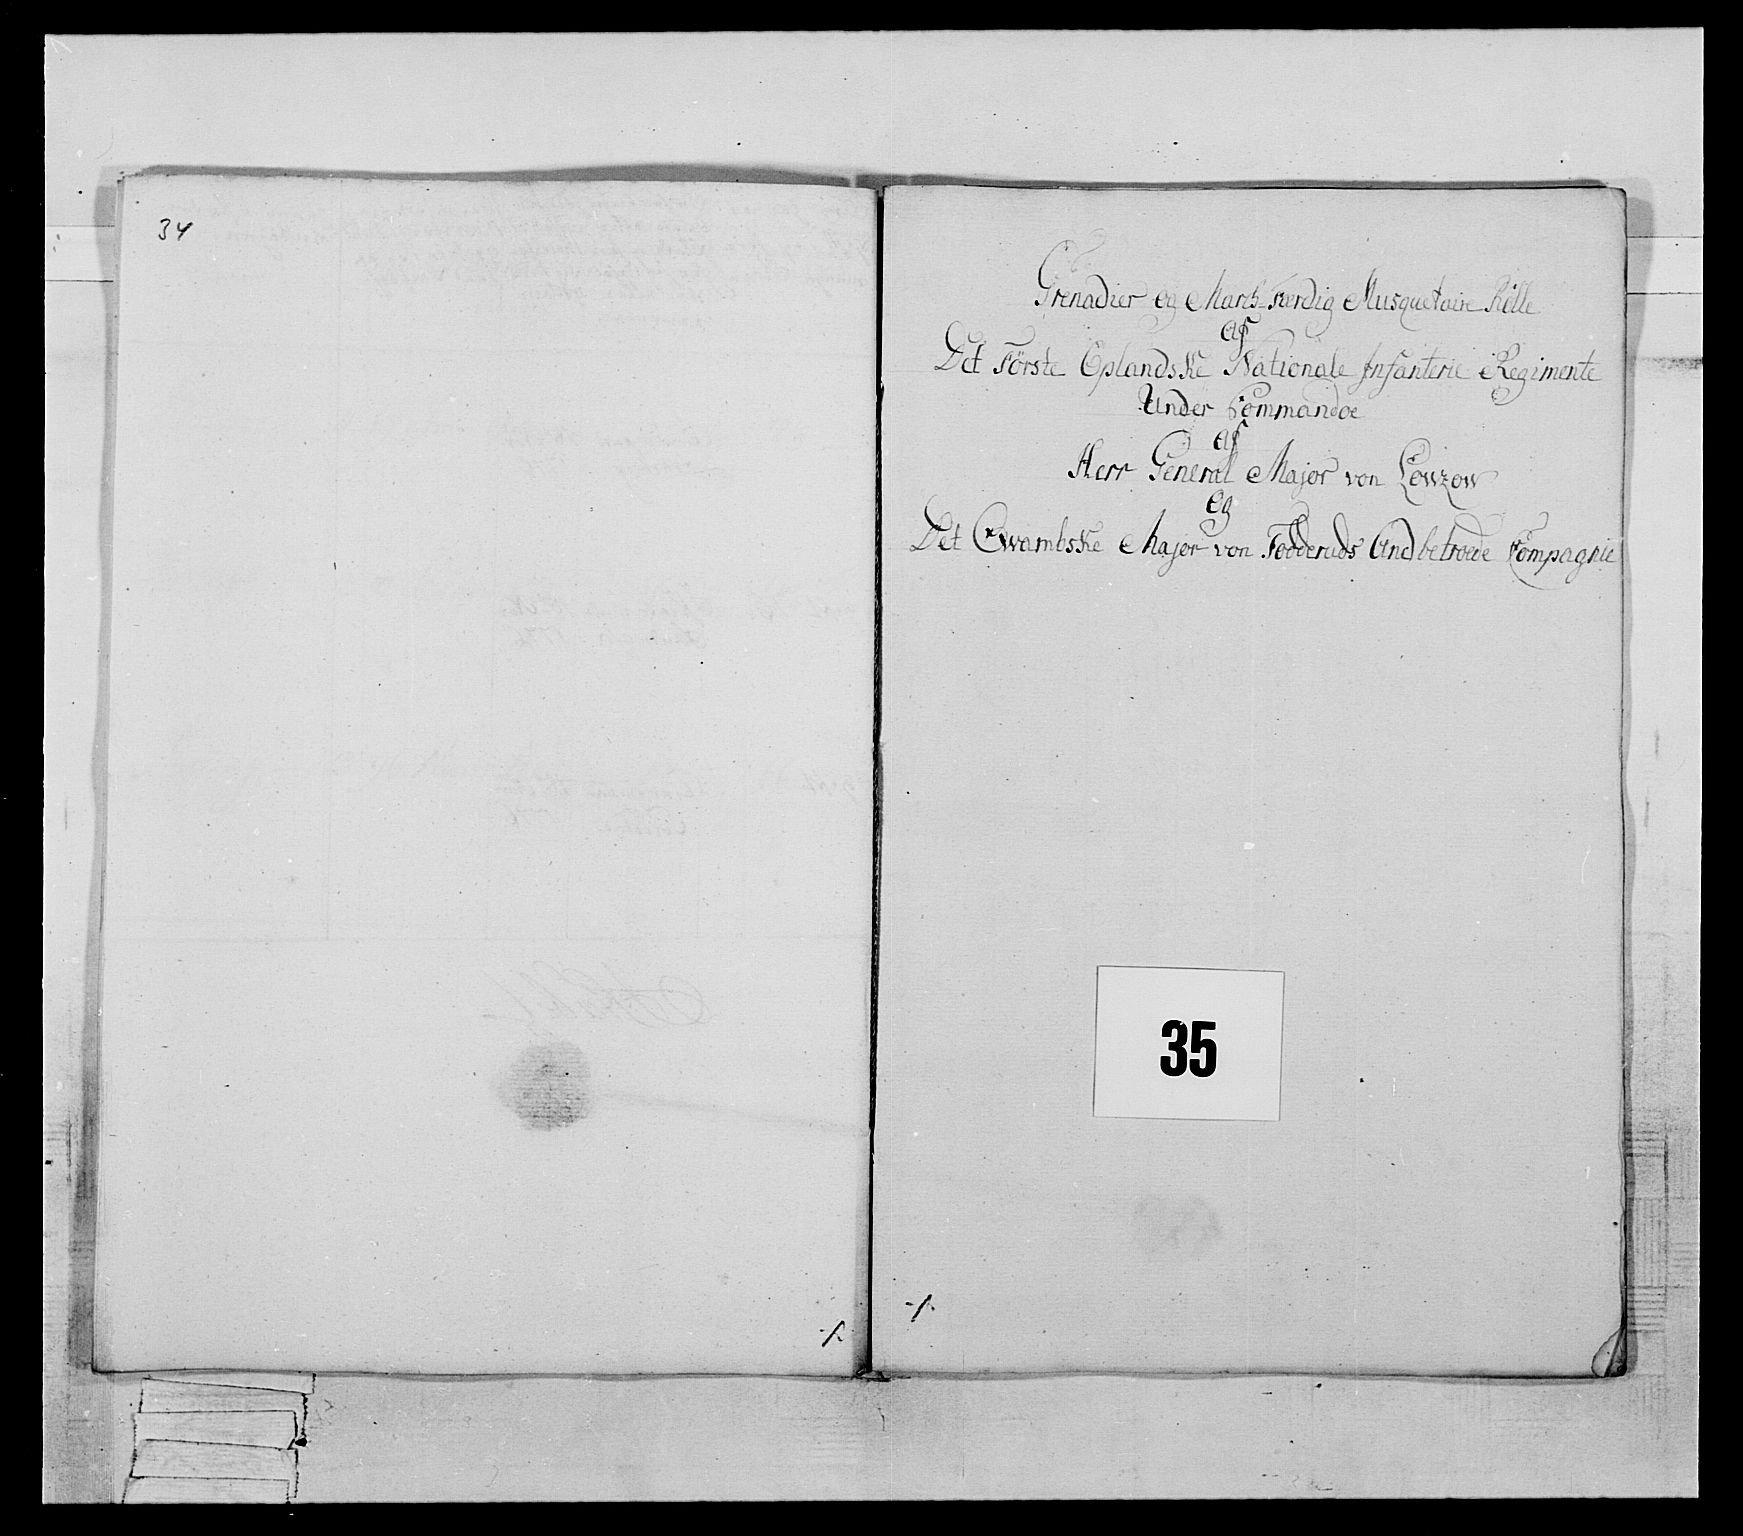 34
Grenadier og March-færdig Musquetaire Rolle
af
Det Förste Oplandske Nationale Infanterie Regimente
Under Commandoe
af
Herr General Major von Lowzow
og
Det Qwambske Major von Fodderuds Anbetroede Compagnie
35
-/.
-/.